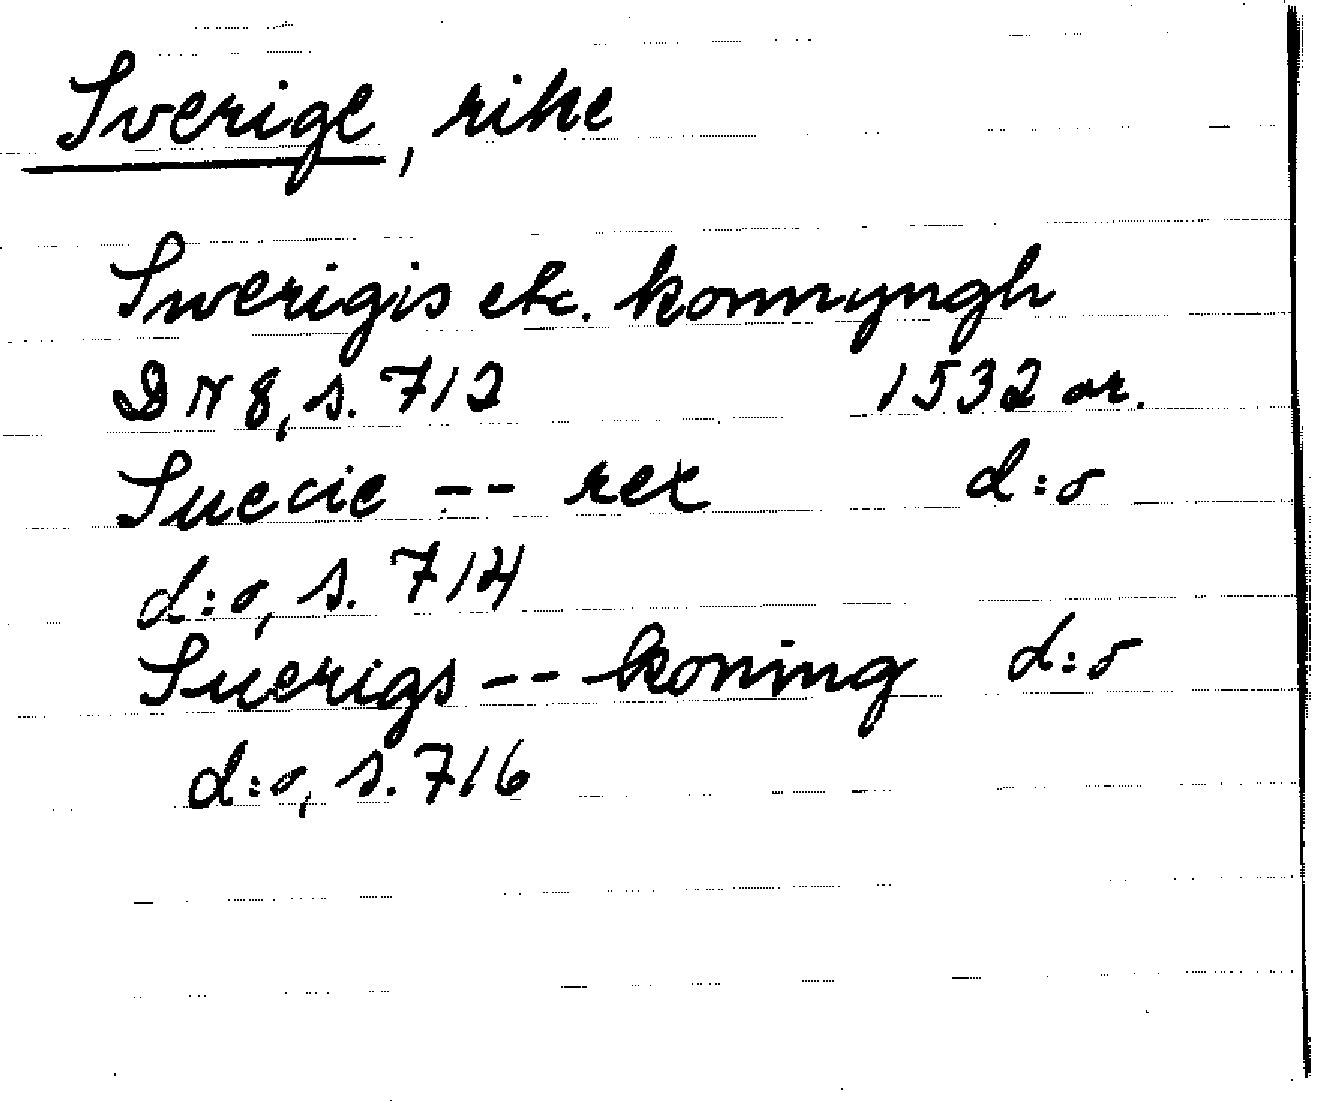 Sverige, rike
Swerigis etc. konnyngh
DN 8, s. 712 1532 or.
Suecie -- rex d:o
d:o, s. 714
Suerigs -- koning d:o
d:o, s. 716